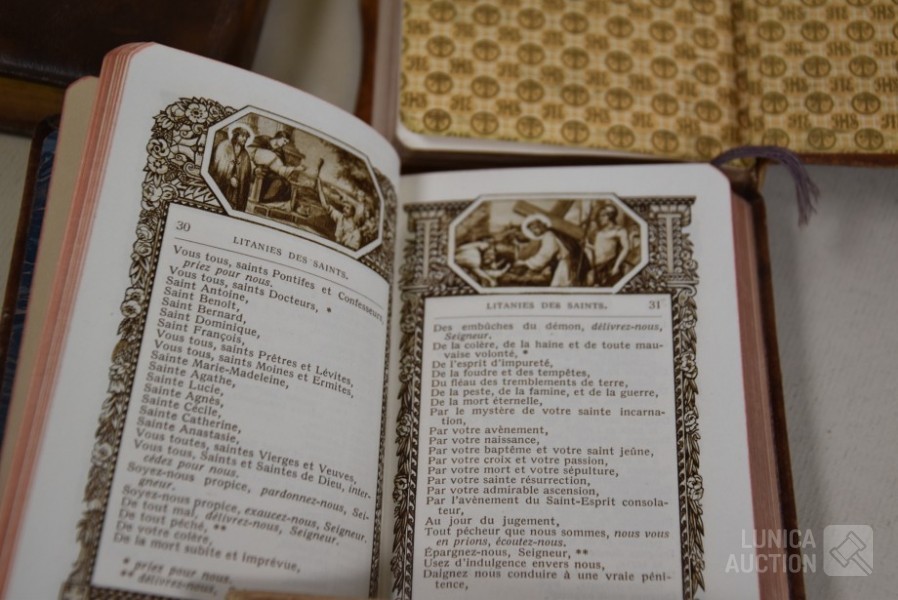 30
LITANIES DES SAINTS.
Vous tous, saints Pontifes et Confesseurs,
priez pour nous.
Vous tous, saints Docteurs, *
Saint Antoine,
Saint Benoît,
Saint Bernard,
Saint Dominique,
Saint François,
Vous tous, saints Prêtres et Lévites,
Vous tous, saints Moines et Ermites,
Sainte Marie-Madeleine,
Sainte Agathe,
Sainte Lucie,
Sainte Agnès,
Sainte Cécile,
Sainte Catherine,
Sainte Anastasie,
Vous toutes, saintes Vierges et Veuves,
Vous tous, Saints et Saintes de Dieu, inter-
cédez pour nous.
Soyez-nous propice, pardonnez-nous, Sei-
gneur.
Soyez-nous propice, exaucez-nous, Seigneur.
De tout mal, délivrez-nous, Seigneur.
De tout péché, **
De votre colère,
De la mort subite et imprévue,
* priez pour nous.
** délivrez-nous,
LITANIES DES SAINTS. 31
Des embûches du démon, délivrez-nous,
Seigneur.
De la colère, de la haine et de toute mau-
vaise volonté, *
De l'esprit d'impureté,
De la foudre et des tempêtes,
Du fléau des tremblements de terre,
De la peste, de la famine, et de la guerre,
De la mort éternelle,
Par le mystère de votre sainte incarna-
tion,
Par votre avènement,
Par votre naissance,
Par votre baptême et votre saint jeûne,
Par votre croix et votre passion,
Par votre mort et votre sépulture,
Par votre sainte résurrection,
Par votre admirable ascension,
Par l'avènement du Saint-Esprit consola-
teur,
Au jour du jugement,
Tout pécheur que nous sommes, nous vous
en prions, écoutez-nous.
Épargnez-nous, Seigneur, **
Usez d'indulgence envers nous,
Daignez nous conduire à une vraie péni-
tence,
LUNICA
AUCTION